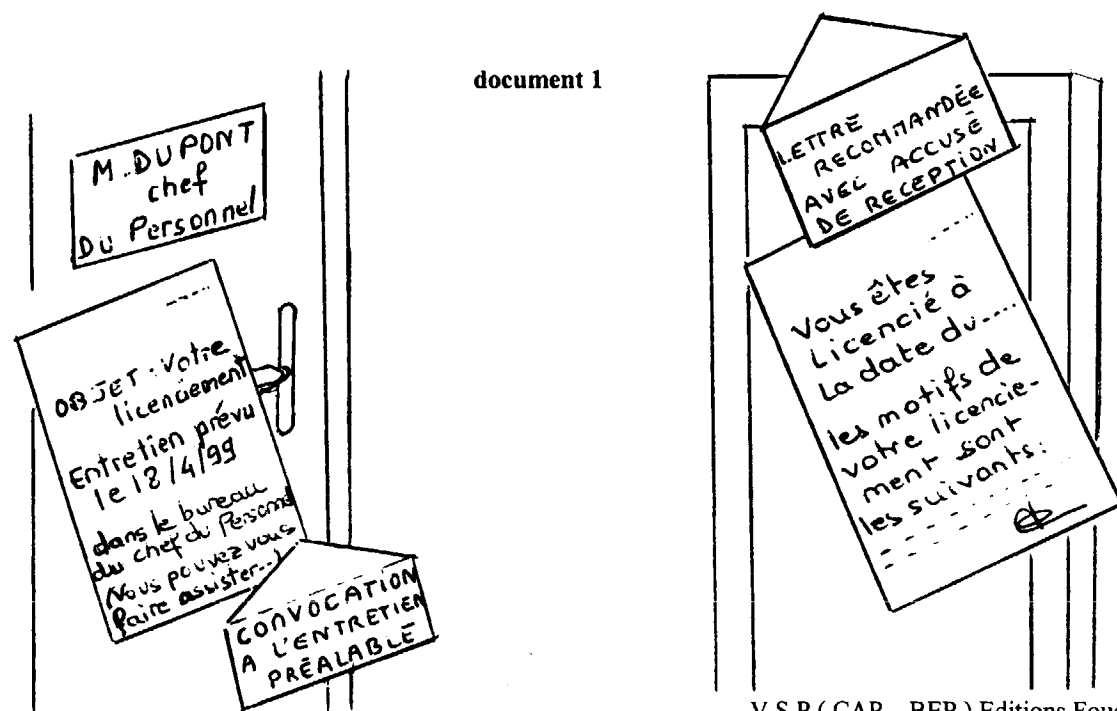 document 1
M. DUPONT
chef
Du Personnel
OBJET : Votre
licenciement
Entretien prévu
le 18/4/99
dans le bureau
du chef du Personnel
(Vous pouvez vous
faire assister...)
CONVOCATION
A L'ENTRETIEN
PRÉALABLE
LETTRE
RECOMMANDÉE
AVEC ACCUSÉ
DE RECEPTION
Vous êtes
Licencié à
La date du.....
les motifs de
votre licencie-
ment sont
les suivants:
V.S.P ( CAP – BEP ) Editions